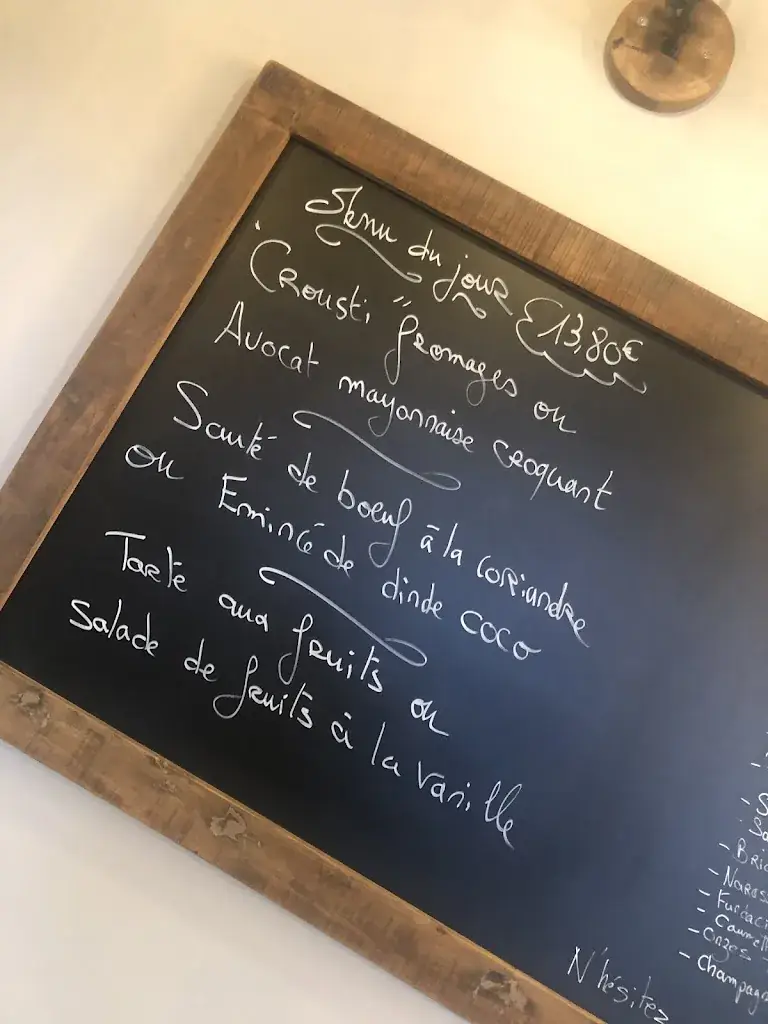 Menu du jour 13,80€
Crousti" fromages ou
Avocat mayonnaise croquant
Sauté de boeuf à la coriandre
ou Emincé de dinde coco
Tarte aux fruits ou
Salade de fruits à la vanille
- Champagn
N'hésitez